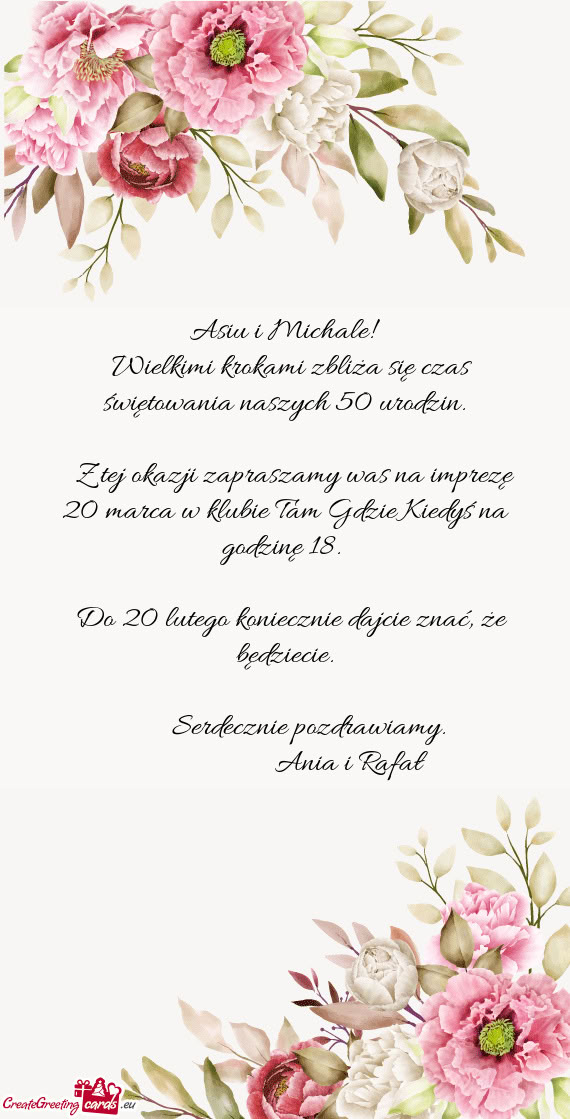 Asiu i Michale!
Wielkimi krokami zbliża się czas
świętowania naszych 50 urodzin.
Z tej okazji zapraszamy was na imprezę
20 marca w klubie Tam Gdzie Kiedyś na
godzinę 18.
Do 20 lutego koniecznie dajcie znać, że
będziecie.
Serdecznie pozdrawiamy.
Ania i Rafał
CreateGreeting cards .eu